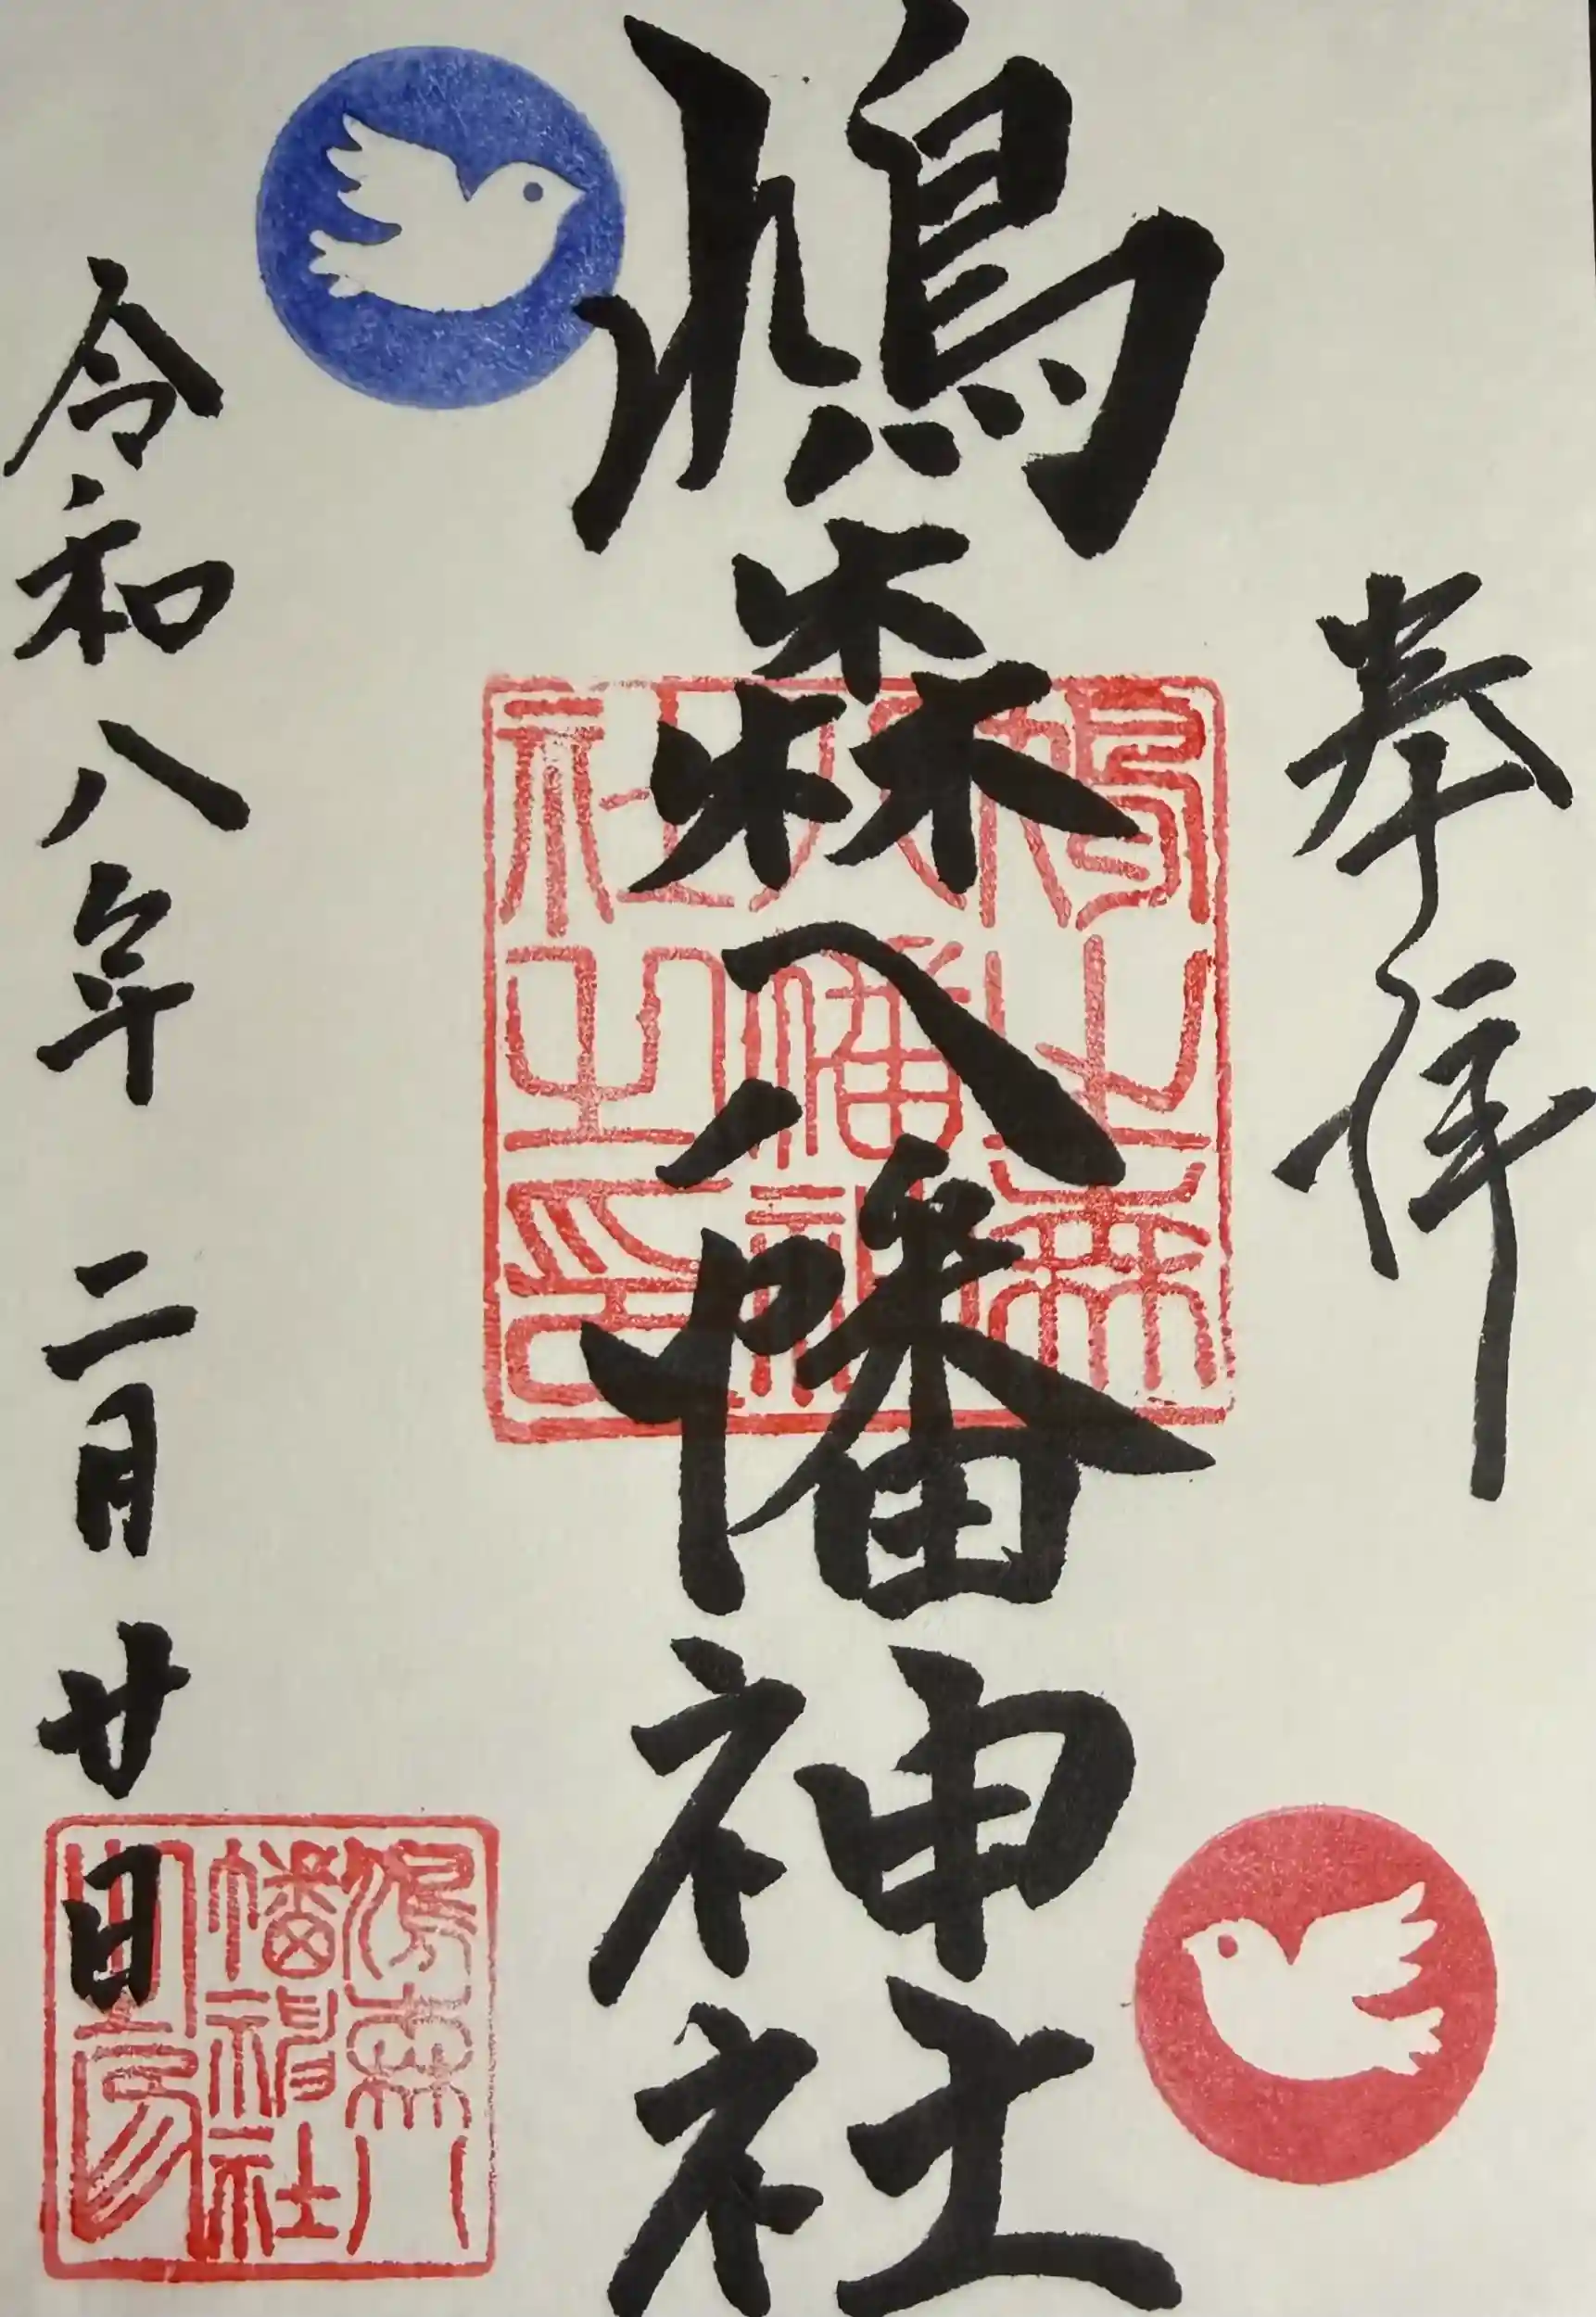 奉拝
鳩森八幡神社
鳩之森
八幡神
社之印
令和八年 二月 廿日
鳩森八
幡神社
之印